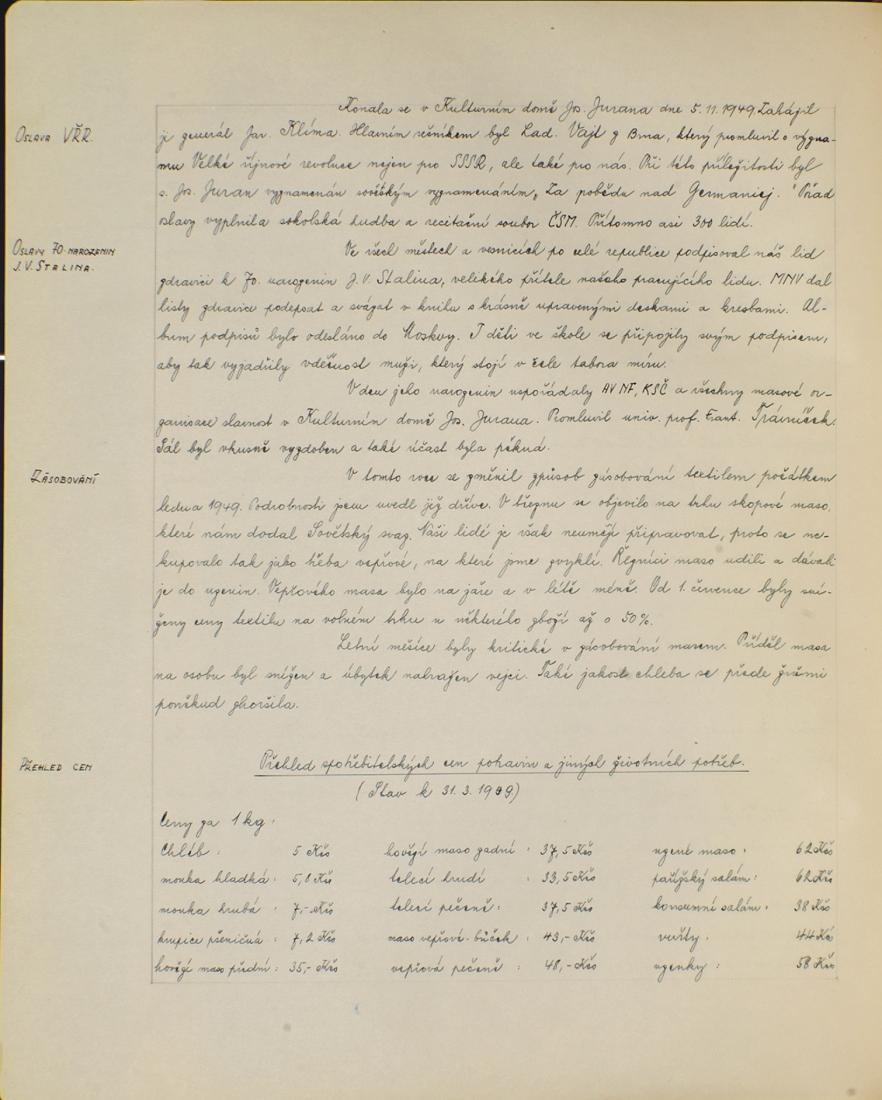 Oslava VŘR.
Konala se v Kulturním domě Jos. Jurana dne 5.11.1949. Zahájil
ji generál Jar. Klíma. Hlavním řečníkem byl Lad. Vajt z Brna, který promluvil o význa-
mu Velké říjnové revoluce nejen pro SSSR, ale také pro nás. Při této příležitosti byl
s. Jos. Juran vyznamenán sovětským vyznamenáním „Za pobědu nad Germaniej." Pořad
oslavy vyplnila sokolská hudba a recitační soubor ČSM. Přítomno asi 300 lidí.
Oslavy 70. narozenin
J. V. Stalina.
Ve všech městech a vesnicích po celé republice podpisoval náš lid
zdravici k 70. narozenin J. V. Stalina, velikého přítele našeho pracujícího lidu. MNV dal
listy zdravice podepsat a svázat v knihu s krásně upravenými deskami a kresbami. Al-
bum podpisů bylo odesláno do Moskvy. I děti ve škole se připojily svým podpisem,
aby tak vyjádřily vděčnost muži, který stojí v čele tabora míru.
V den jeho narozenin uspořádaly AV NF, KSČ a všechny masové or-
ganisace slavnost v Kulturním domě Jos. Jurana. Promluvil univ. prof. Frant. Trávníček.
Sál byl vkusně vyzdoben a také účast byla pěkná.
Zásobování
V tomto roce se změnil způsob zásobování textilem počátkem
ledna 1949. Podrobnosti jsem uvedl již dříve. V březnu se objevilo na trhu skopové maso,
které nám dodal Sovětský svaz. Naši lidé je však neumějí připravovat, proto se ne-
kupovalo tak jako třeba vepřové, na které jsme zvyklí. Řezníci maso udili a dávali
je do uzenin. Vepřového masa bylo na jaře a v létě méně. Od 1. července byly sní-
ženy ceny textilu na volném trhu u některého zboží až o 50%.
Letní měsíce byly kritické v zásobování masem. Příděl masa
na osobu byl snížen a úbytek nahrazen vejci. Také jakost chleba se přede žněmi
poněkud zhoršila.
Přehled cen
Přehled spotřebitelských cen potravin a jiných životních potřeb.
(Stav k 31.3.1949)
Ceny za 1 kg.
Chléb : 5 Kčs hovězí maso zadní : 37,5 Kčs uzené maso : 62 Kčs
mouka hladká : 5,8 Kčs telecí hrudí : 33,5 Kčs pařížský salám : 62 Kčs
mouka hrubá : 7,- Kčs telecí pečeně : 37,5 Kčs konsumní salám : 38 Kčs
krupice pšeničná : 7,2 Kčs maso vepřové-bůček : 43,- Kčs vuřty : 44 Kčs
hovězí maso přední : 35,- Kčs vepřová pečeně : 48,- Kčs uzenky : 58 Kčs